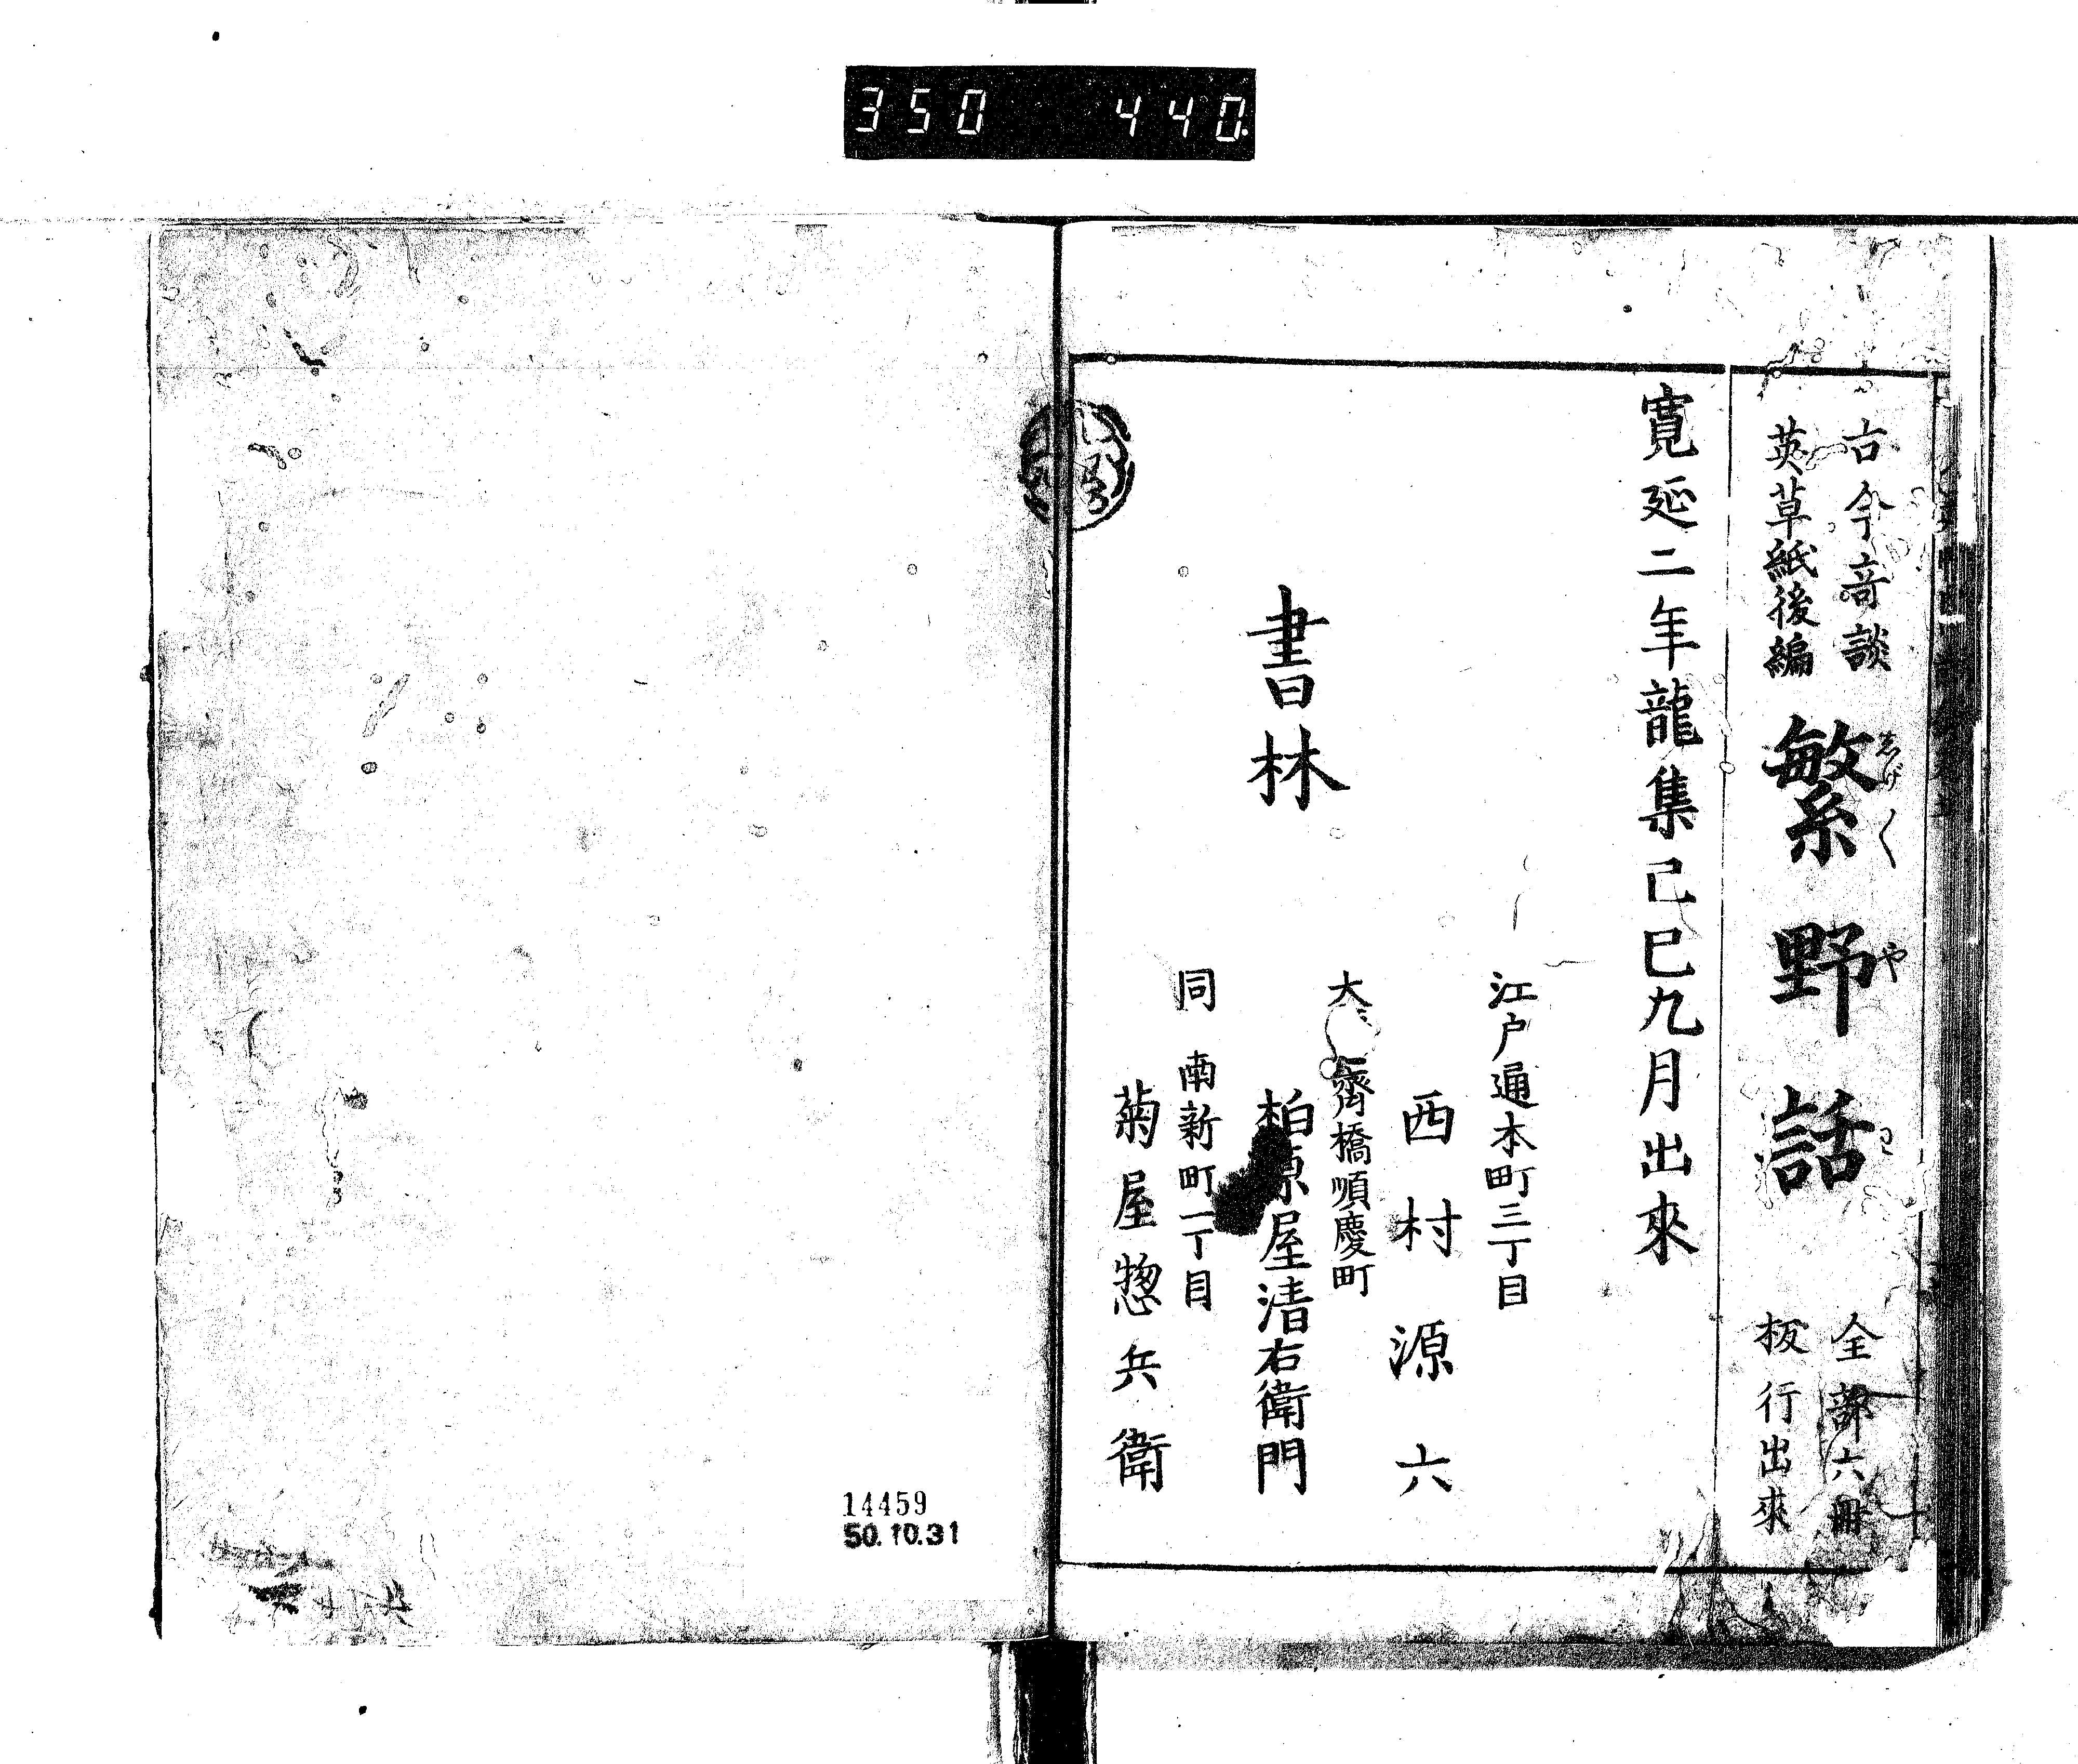 350 440.
古今竒談
英草紙後編
繁野話
しげ〱
や
わ
全部六冊
板行出來
寛延二年龍集己巳九月出來
江戸通本町三丁目
西村源六
大 齋橋順慶町
書林
柏原屋清右衛門
同 南新町一丁目
菊屋惣兵衛
14459
50.10.31